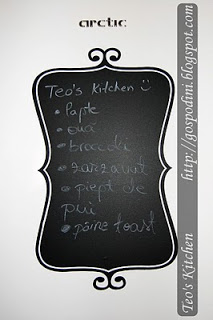 arctic
Teo's Kitchen ü
• lapte
• ouă
• broccoli
• zarzavat
• piept de
pui
• pâine toast
Teo's Kitchen http://gospodini.blogspot.com